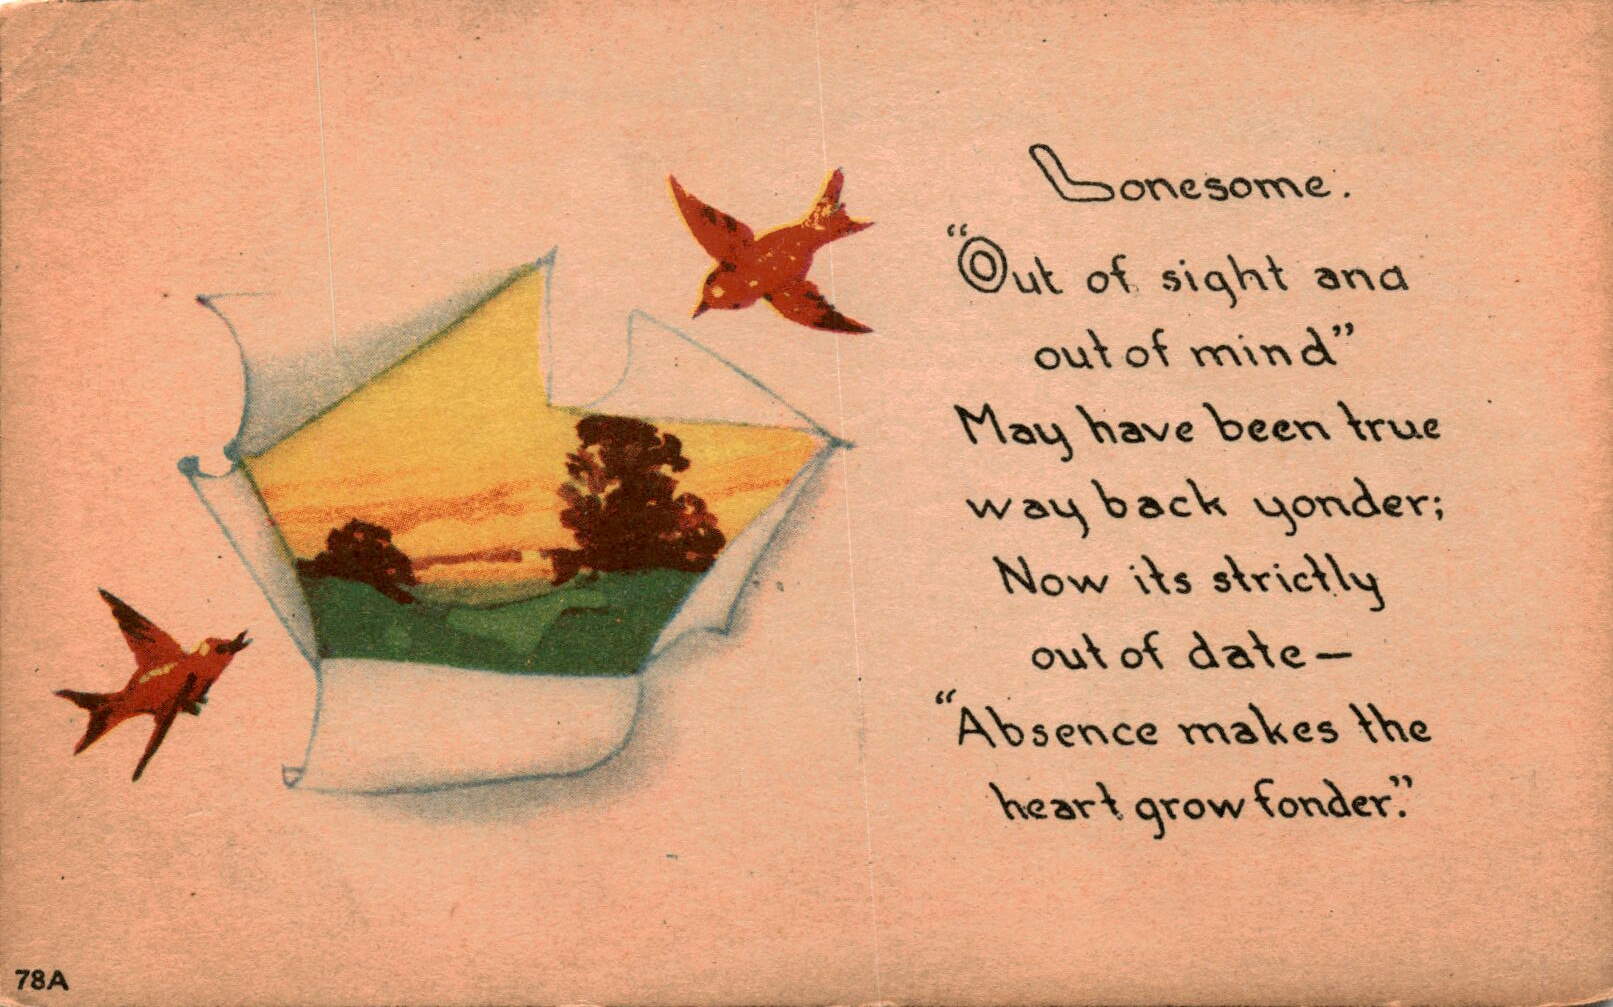 Lonesome.
"Out of sight and
out of mind"
May have been true
way back yonder;
Now its strictly
out of date—
"Absence makes the
heart grow fonder."
78A